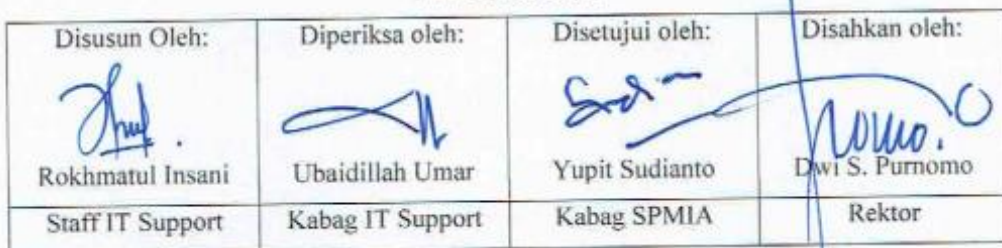 Disusun Oleh: Diperiksa oleh: Disetujui oleh: Disahkan oleh:
Rokhmatul Insani Ubaidillah Umar Yupit Sudianto Dwi S. Purnomo
Staff IT Support Kabag IT Support Kabag SPMIA Rektor